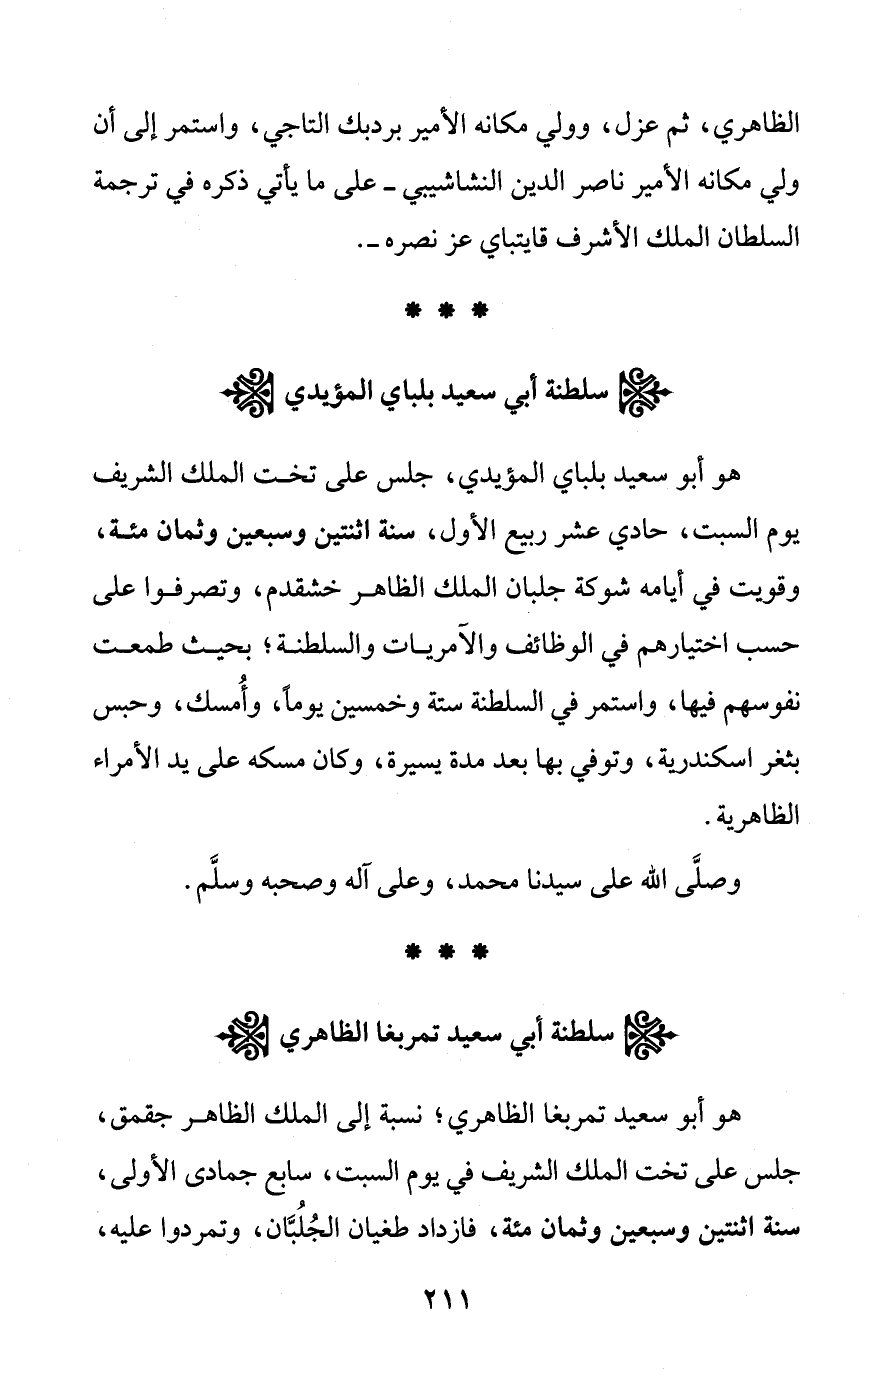 الظاهري، ثم عزل، وولي مكانه الأمير بردبك التاجي، واستمر إلى أن
ولي مكانه الأمير ناصر الدين النشاشيبي ـ على ما يأتي ذكره في ترجمة
السلطان الملك الأشرف قايتباي عز نصره ـ.
* * *
سلطنة أبي سعيد بلباي المؤيدي
هو أبو سعيد بلباي المؤيدي، جلس على تخت الملك الشريف
يوم السبت، حادي عشر ربيع الأول، سنة اثنتين وسبعين وثمان مئة،
وقويت في أيامه شوكة جلبان الملك الظاهر خشقدم، وتصرفوا على
حسب اختيارهم في الوظائف والآمريات والسلطنة؛ بحيث طمعت
نفوسهم فيها، واستمر في السلطنة ستة وخمسين يوماً، وأُمسك، وحبس
بثغر اسكندرية، وتوفي بها بعد مدة يسيرة، وكان مسكه على يد الأمراء
الظاهرية.
وصلَّى الله على سيدنا محمد، وعلى آله وصحبه وسلَّم.
* * *
سلطنة أبي سعيد تمربغا الظاهري
هو أبو سعيد تمربغا الظاهري؛ نسبة إلى الملك الظاهر جقمق،
جلس على تخت الملك الشريف في يوم السبت، سابع جمادى الأولى،
سنة اثنتين وسبعين وثمان مئة، فازداد طغيان الجُلُبَّان، وتمردوا عليه،
٢١١